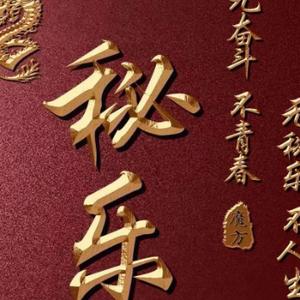 秘乐
奋斗 不青春
魔方
无秘乐 不人生